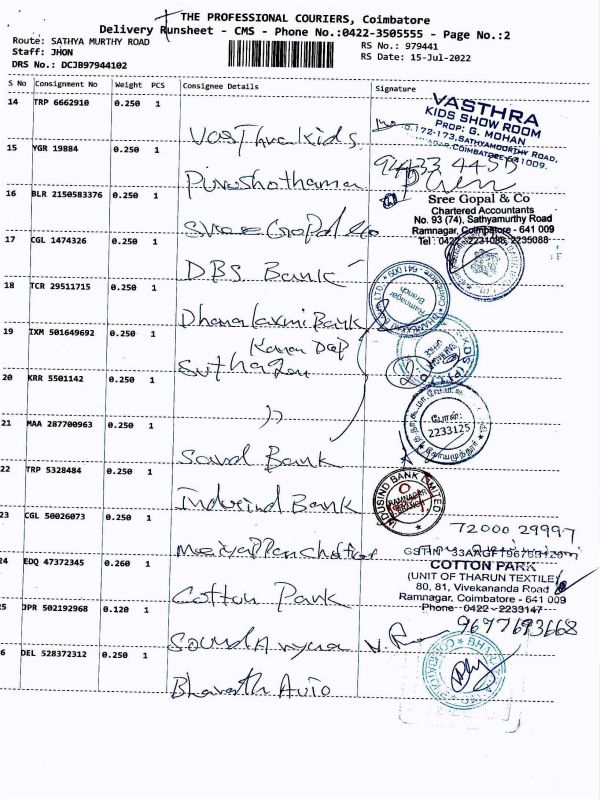 THE PROFESSIONAL COURIERS, Coimbatore
Delivery Runsheet - CMS - Phone No.:0422-3505555 - Page No.:2
Route: SATHYA MURTHY ROAD
RS No.: 979441
Staff: JHON
RS Date: 15-Jul-2022
DRS No.: DCJB97944102
S No Consignment No Weight PCS Consignee Details Signature
14 TRP 6662910 0.250 1 Vasthra kids
VASTHRA
KIDS SHOW ROOM
PROP: G. MOHAN
15 YGR 19884 0.250 1 Purushothaman
16 BLR 2150583376 0.250 1 Sree Gopal & co
Sree Gopal & Co
Chartered Accountants
No. 93 (74), Sathyamurthy Road
Ramnagar, Coimbatore - 641 009
Tel : 0422-2231086, 2235088
17 CGL 1474326 0.250 1 DBS Bank
18 TCR 29511715 0.250 1 Dhanalaxmi Bank
Ramnagar
Branch
19 IXM 501649692 0.250 1
20 KRR 5501142 0.250 1 ))
போன்:
2233125
21 MAA 287700963 0.250 1 Bank
22 TRP 5328484 0.250 1 Indusind Bank
INDUSIND BANK LIMITED
RAMNAGAR
BRANCH
23 CGL 50026073 0.250 1
72000 29997
24 EDQ 47372345 0.260 1 Cotton Park
COTTON PARK
(UNIT OF THARUN TEXTILE)
80, 81, Vivekananda Road
Ramnagar, Coimbatore - 641 009
Phone - 0422 - 2233147
25 JPR 502192968 0.120 1
9697693668
26 DEL 528372312 0.250 1 Bharath Auto